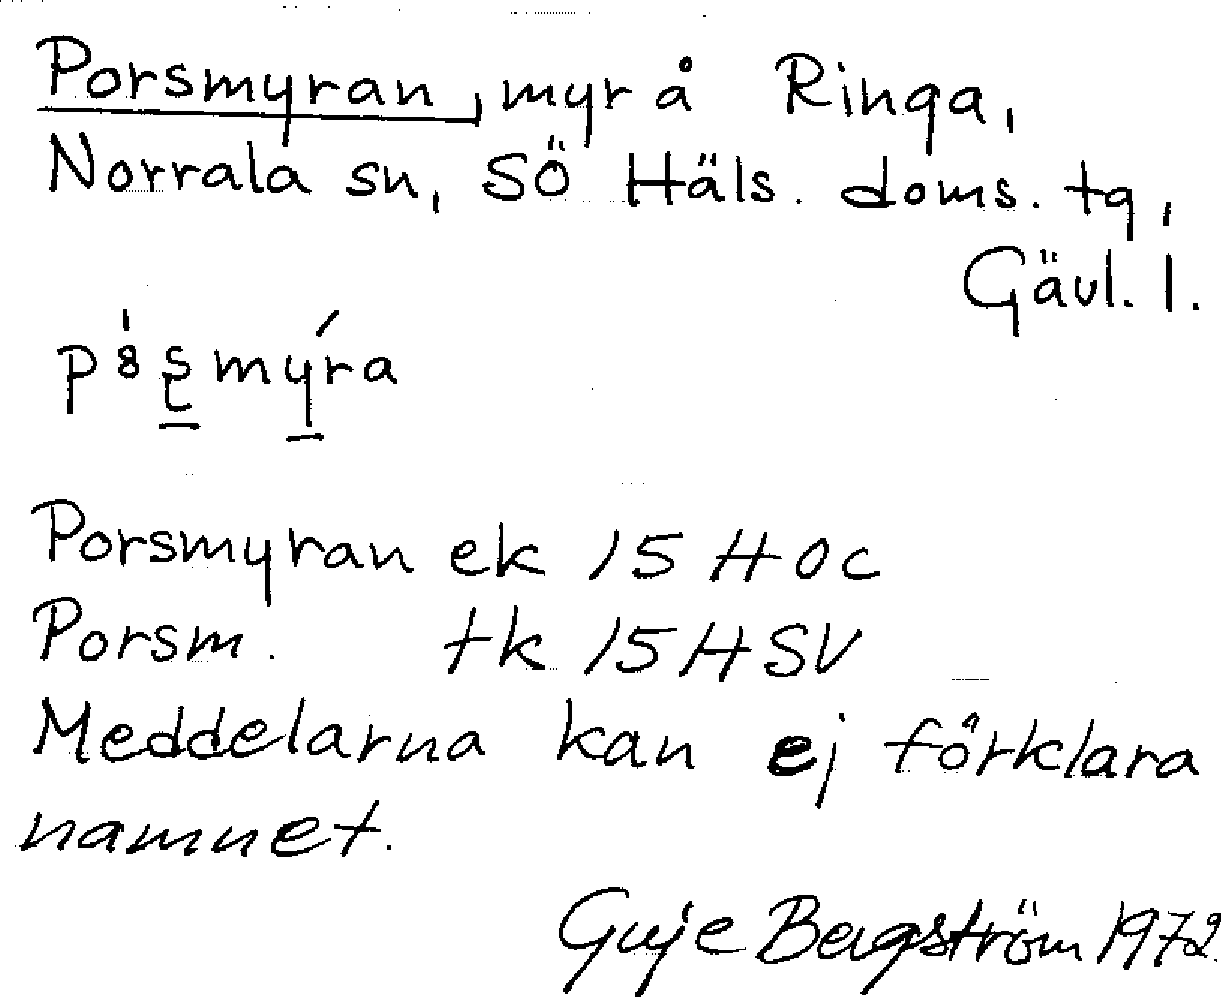 Porsmyran, myr å Ringa,
Norrala sn, SÖ Häls. doms. tg,
Gävl. l.
Porsmyran ek 15 H 0 c
Porsm. tk 15 H SV
Meddelarna kan ej förklara
namnet.
Guje Bergström 1972.